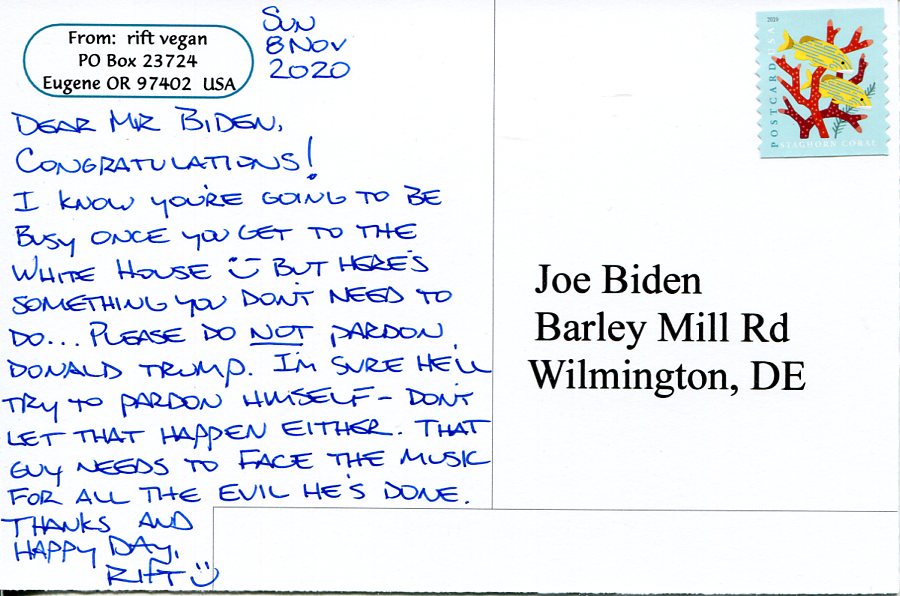 From: rift vegan
PO Box 23724
Eugene OR 97402 USA
SUN
8 NOV
2020
DEAR MR BIDEN,
CONGRATULATIONS!
I KNOW YOU'RE GOING TO BE
BUSY ONCE YOU GET TO THE
WHITE HOUSE :) BUT HERE'S
SOMETHING YOU DON'T NEED TO
DO... PLEASE DO NOT PARDON
DONALD TRUMP. I'M SURE HE'LL
TRY TO PARDON HIMSELF - DON'T
LET THAT HAPPEN EITHER. THAT
GUY NEEDS TO FACE THE MUSIC
FOR ALL THE EVIL HE'S DONE.
THANKS AND
HAPPY DAY,
RIFT :)
2019
POSTCARD USA
STAGHORN CORAL
Joe Biden
Barley Mill Rd
Wilmington, DE